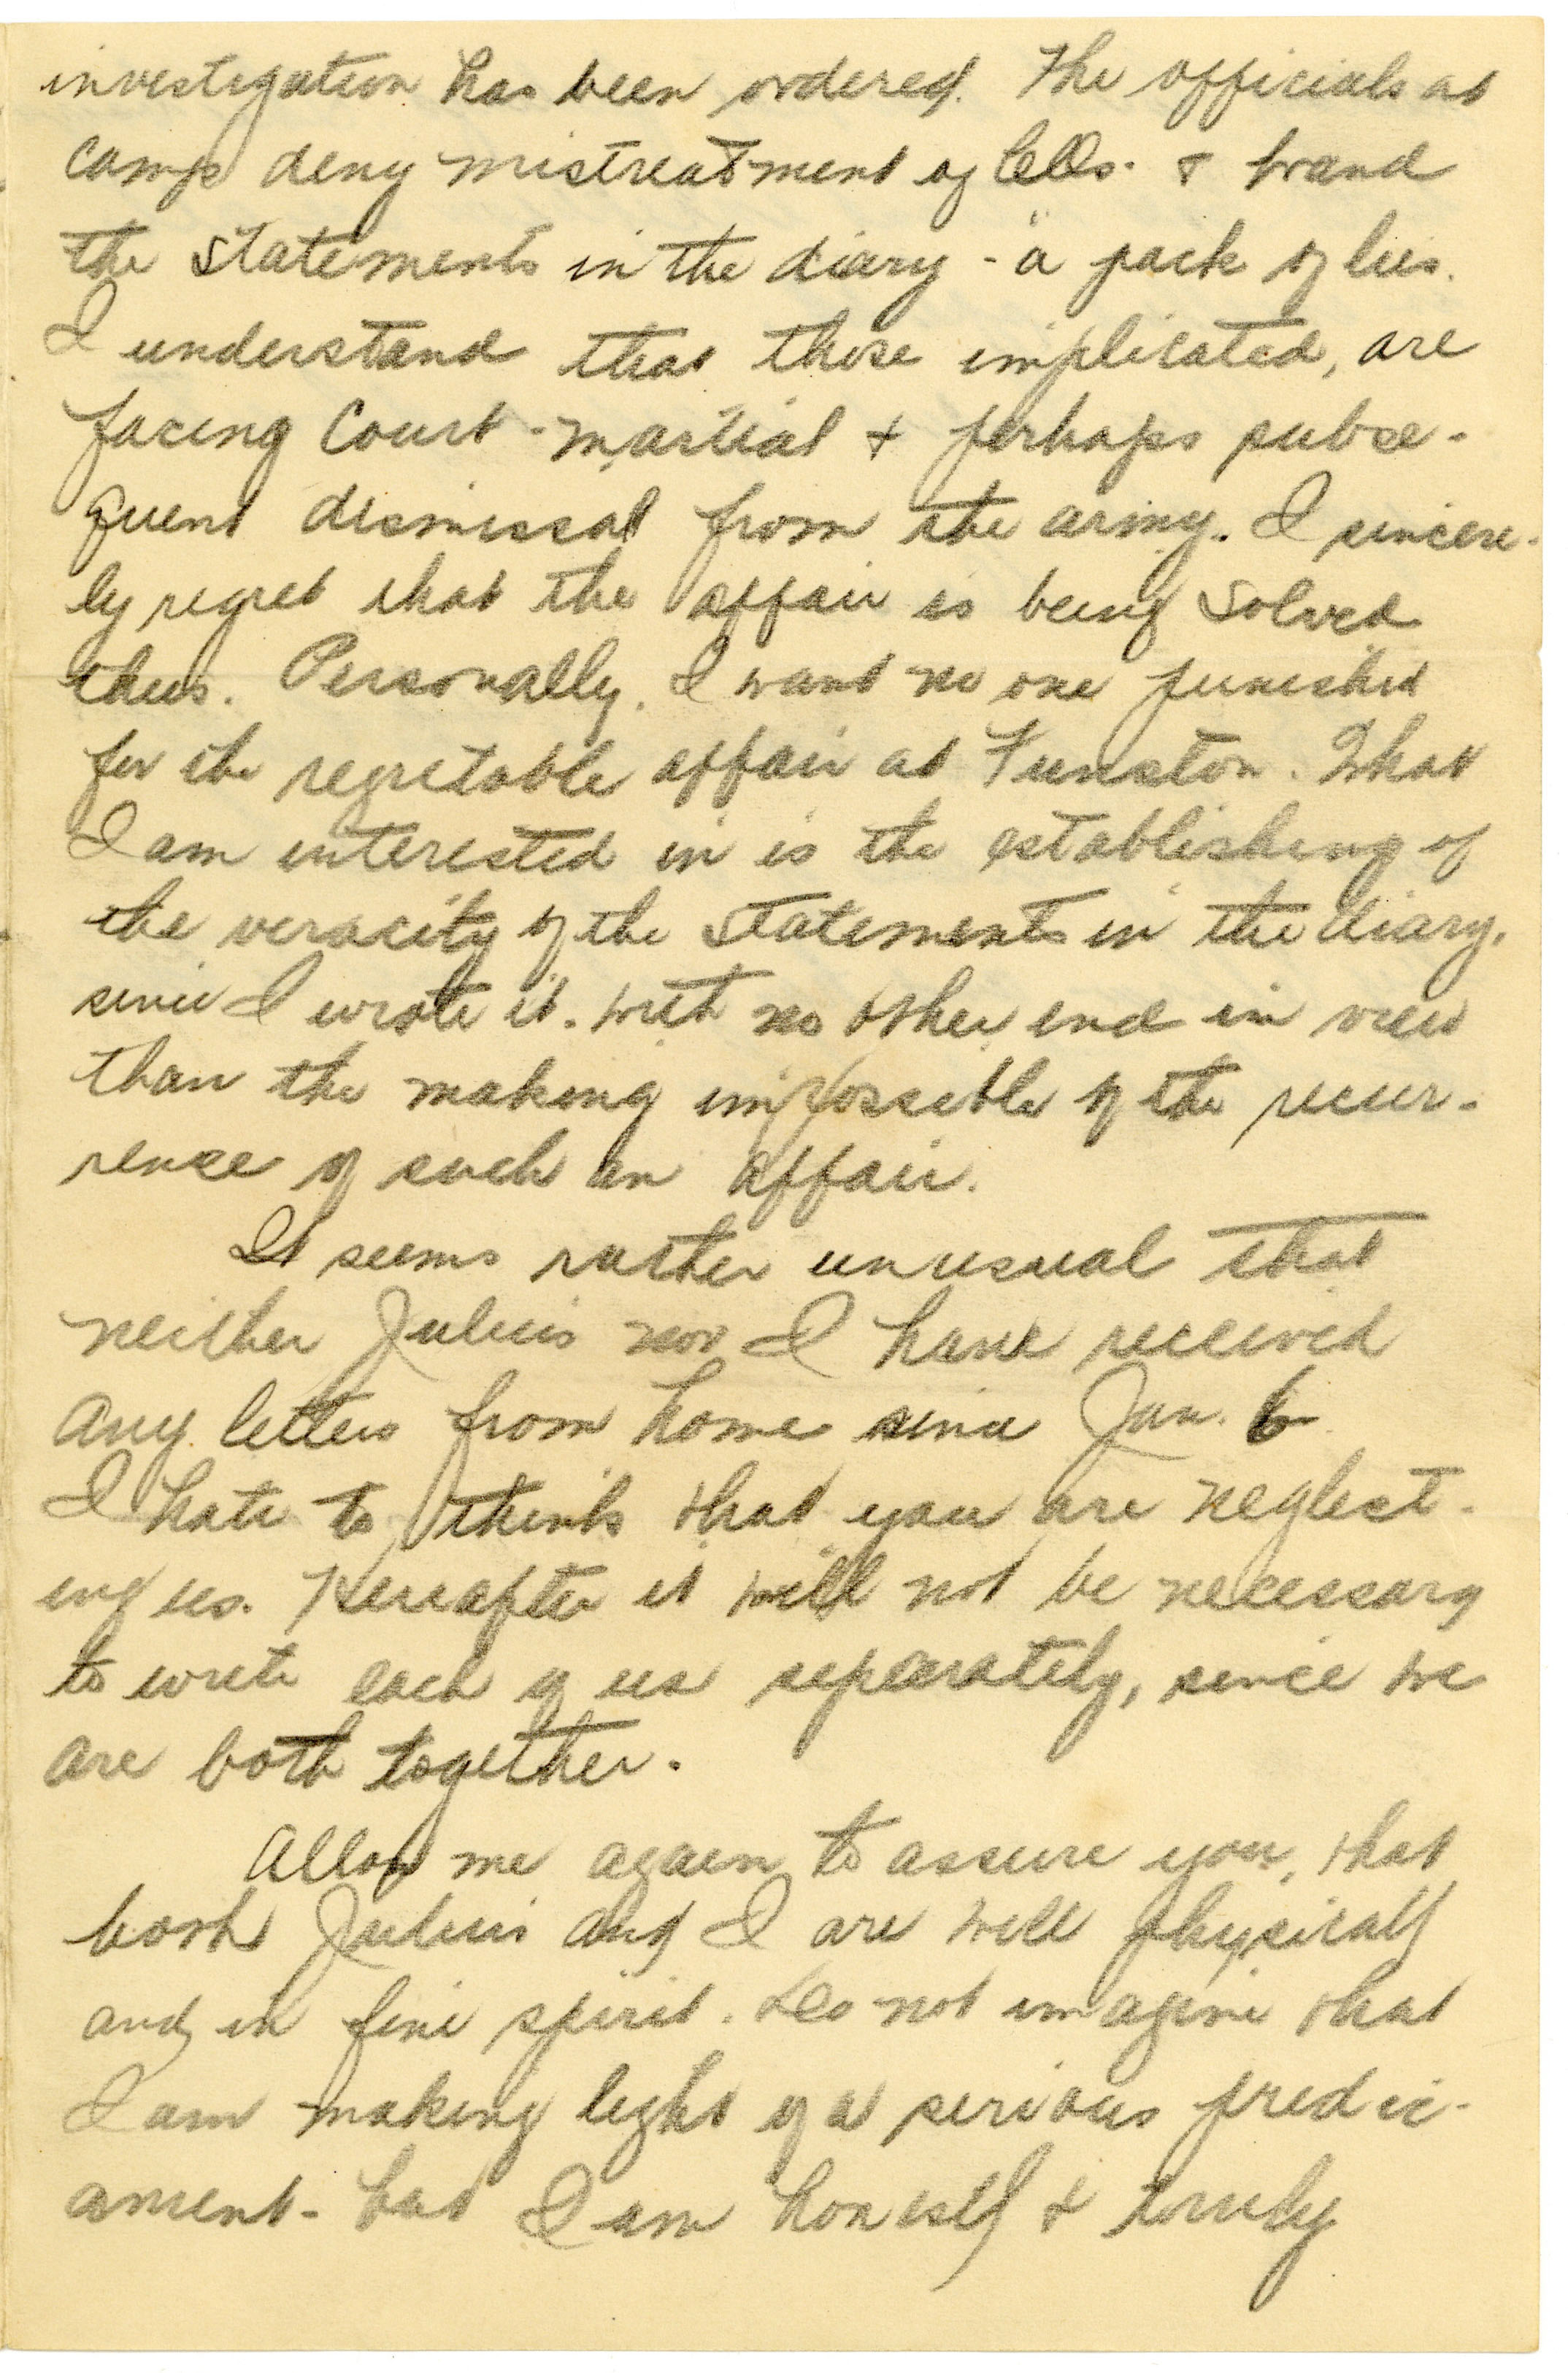 investigation has been ordered. The officials at
camp deny mistreatment of COs. & brand
the statements in the diary - "a pack of lies.
I understand that those implicated, are
facing Court-martial & perhaps subse-
quent dismissal from the army. I sincere-
ly regret that the affair is being solved
thus. Personally, I want no one punished
for the regretable affair at Funston. What
I am interested in is the establishing of
the veracity of the statements in the diary,
since I wrote it. with no other end in view
than the making impossible of the recur-
rence of such an affair.
It seems rather unusual that
neither Julius nor I have received
any letters from home since Jan. 6
I hate to think that you are neglect-
ing us. Hereafter it will not be necessary
to write each of us separately, since we
are both together.
Allow me again to assure you, that
both Julius and I are well physically
and in fine spirit. Do not imagine that
I am making light of a serious predic-
ament- but I am honestly & truly